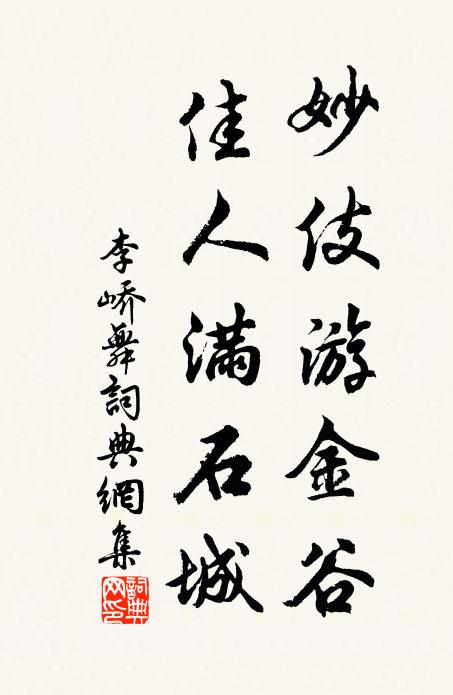 妙伎游金谷
佳人满石城
李峤舞詞典網集
詞典网印